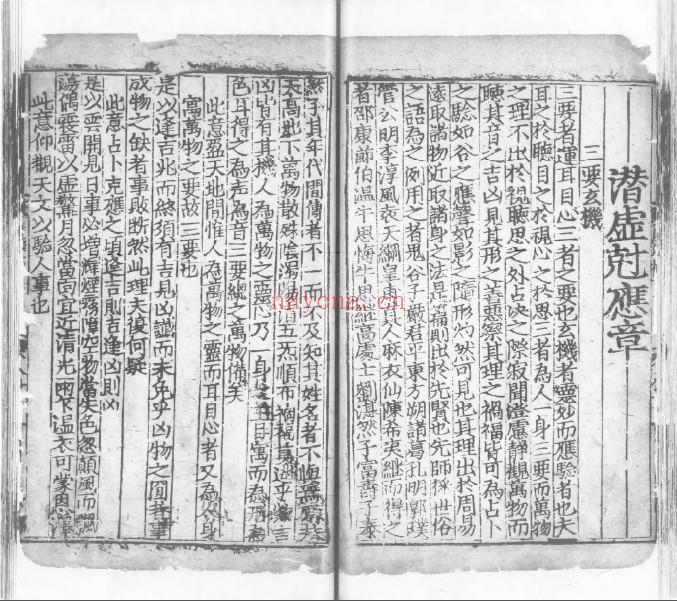 潜虛尅應章
三要玄機
三要者運耳目心三者之要也玄機者靈妙而應驗者也夫
耳之於聽目之於視心之於思三者為人一身三要而萬物
之理不出於視聽思之外占决之際寂聞澄慮靜觀萬物而
聽其音之吉凶見其形之善惡察其理之禍福皆可為占卜
之驗如谷之應聲如影之隨形灼然可見也其理出於周易
遠取諸物近取諸身之法是篇則出於先賢也先師採世俗
之語為之例用之者鬼谷子嚴君平東方朔諸葛孔明郭璞
管公明李淳風袁天綱皇甫真人麻衣仙陳希夷繼而得之
者邵康節伯温牛思晦牛思繼高處士劉湛然子富壽子泰
然子其年代間傳者不一而不及知其姓名者不
天高地下萬物散殊陰濁陽清五炁順布禍福莫逃乎
凶皆有其機人為萬物之靈心乃一身之主目寓而為
色耳得之為音三要總之萬物備矣
此意盈天地間惟人為萬物之靈而耳目心者又為人身
寓萬物之要故三要也
是以逢吉兆而終須有吉見凶讖而未免乎凶物之圓者事
成物之缺者事敗斷然此理夫復何疑
此意占卜克應之頃逢吉則吉逢凶則凶
是以雲開見日事必增輝烟霧障空物當失色忽顛風而飄
蕩偶震雷以虛驚月忽當面宜近清光雨乍温衣可蒙恩澤
此意仰觀天文以驗人事也
nayona.cn